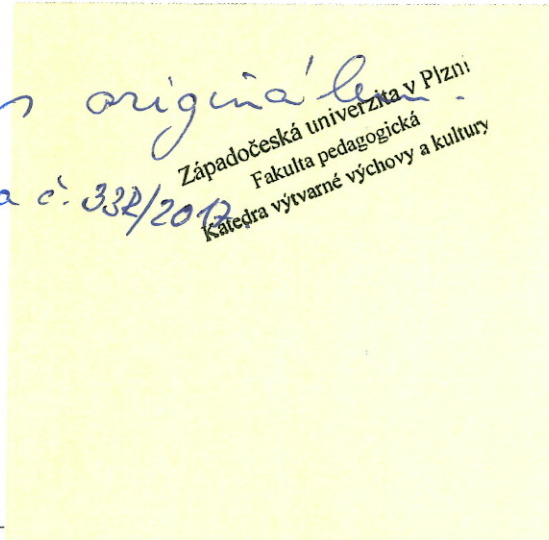 s originálem.
Západočeská univerzita v Plzni
Fakulta pedagogická
a č. 332/2017.
Katedra výtvarné výchovy a kultury